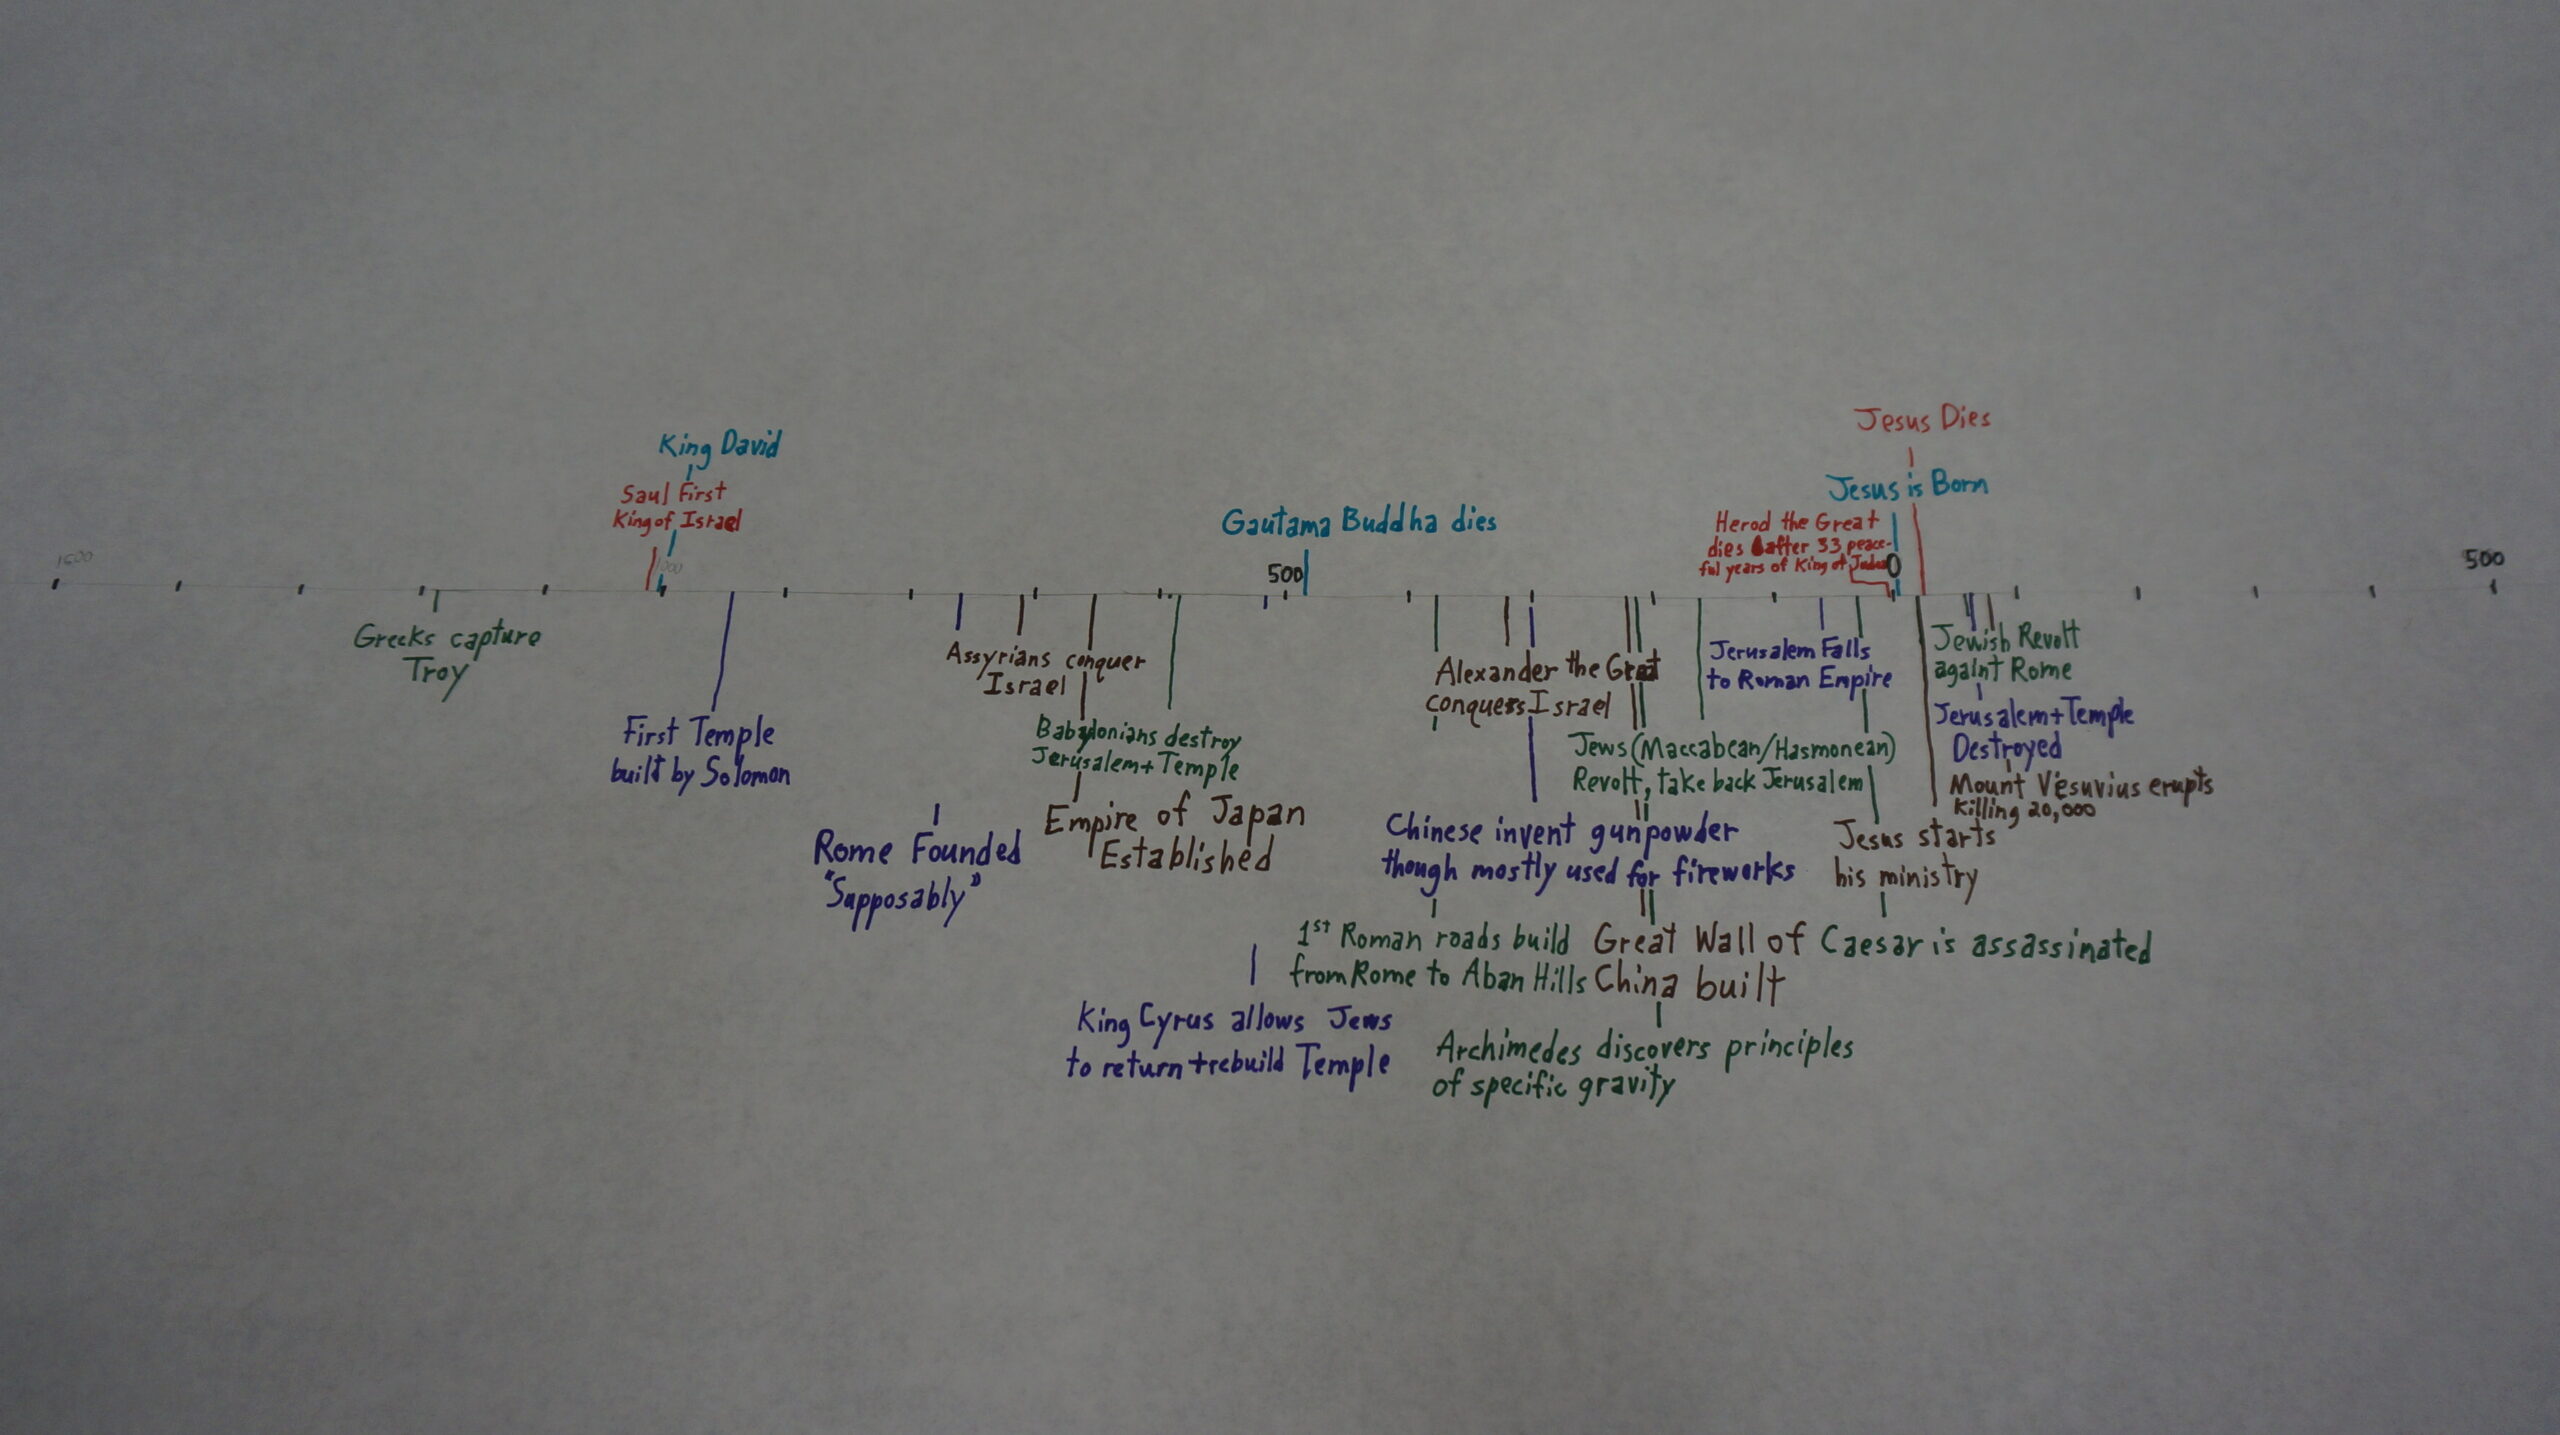 Jesus Dies
King David
Jesus is Born
Saul First
King of Israel
Gautama Buddha dies
Herod the Great
dies after 33 peace-
ful years of King of Judea
1000
500
0
500
Greeks capture
Troy
First Temple
built by Solomon
Rome Founded
"Supposably"
Assyrians conquer
Israel
Babylonians destroy
Jerusalem + Temple
Empire of Japan
Established
King Cyrus allows Jews
to return + rebuild Temple
Alexander the Great
conquers Israel
Jerusalem Falls
to Roman Empire
Jews (Maccabean/Hasmonean)
Revolt, take back Jerusalem
Chinese invent gunpowder
though mostly used for fireworks
1st Roman roads build
from Rome to Aban Hills
Great Wall of
China built
Archimedes discovers principles
of specific gravity
Jewish Revolt
againt Rome
Jerusalem + Temple
Destroyed
Mount Vesuvius erupts
Killing 20,000
Jesus starts
his ministry
Caesar is assassinated